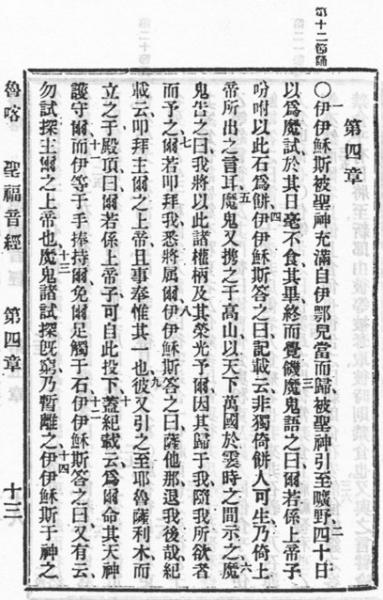 第十二節誦
第四章
一〇伊伊穌斯被聖神充滿自伊鄂兒當而歸被聖神引至曠野四十日二
以爲魔試於其日毫不食其畢終而覺饑魔鬼語之曰爾若係上帝子三
吩咐以此石爲餅四伊伊穌斯答之曰記載云非獨倚餅人可生乃倚上
帝所出之言耳五魔鬼又携之于高山以天下萬國於霎時之間示之魔六
鬼告之曰我將以此諸權柄及其榮光予爾因其歸于我隨我所欲者
而予之七爾若叩拜我悉將屬爾八伊伊穌斯答之曰薩他那退我後哉紀
載云叩拜主爾之上帝且事奉惟其一也九彼又引之至耶魯薩利木而
立之于殿頂曰爾若係上帝子可自此投下十蓋紀載云爲爾命其天神
護守爾十一而伊等于手捧持爾免爾足觸于石十二伊伊穌斯答之曰又有云
勿試探主爾之上帝也十三魔鬼諸試探旣窮乃暫離之十四伊伊穌斯于神之
魯喀 聖福音經 第四章 十三